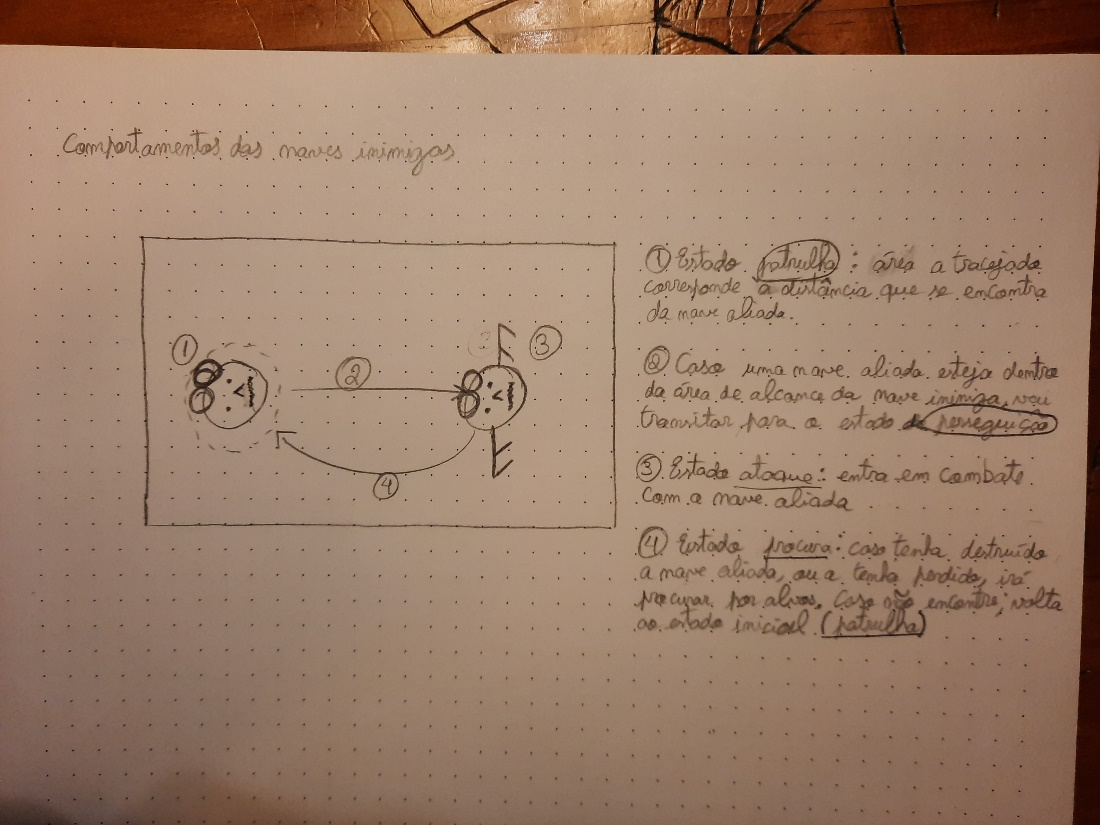 Comportamentos das naves inimigas
1
2
3
4
① Estado patrulha : área a tracejado
corresponde à distância que se encontra
da nave aliada.
② Caso uma nave aliada esteja dentro
da área de alcance da nave inimiga, vou
transitar para o estado perseguição
③ Estado ataque : entra em combate
com a nave aliada
④ Estado procura : caso tenha destruído
a nave aliada, ou a tenha perdido, irá
procurar por alvos. Caso não encontre, volta
ao estado inicial (patrulha)